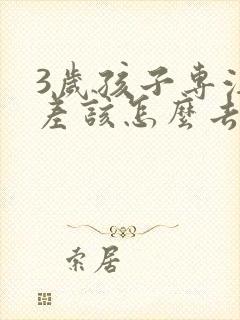 3歲孩子專注
差該怎麼去
索居